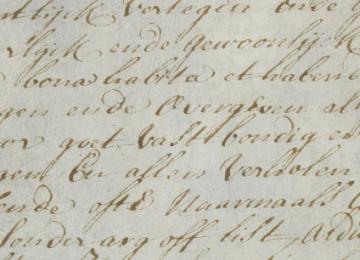 ntlijck vertegen ende
rlijck ende gewoonlijck
bona habita et habend
gen ende Overgeven al
or goet vast bondig en
gen En allen
ende ofte Naarmaals
sonder arg off list, Aldu